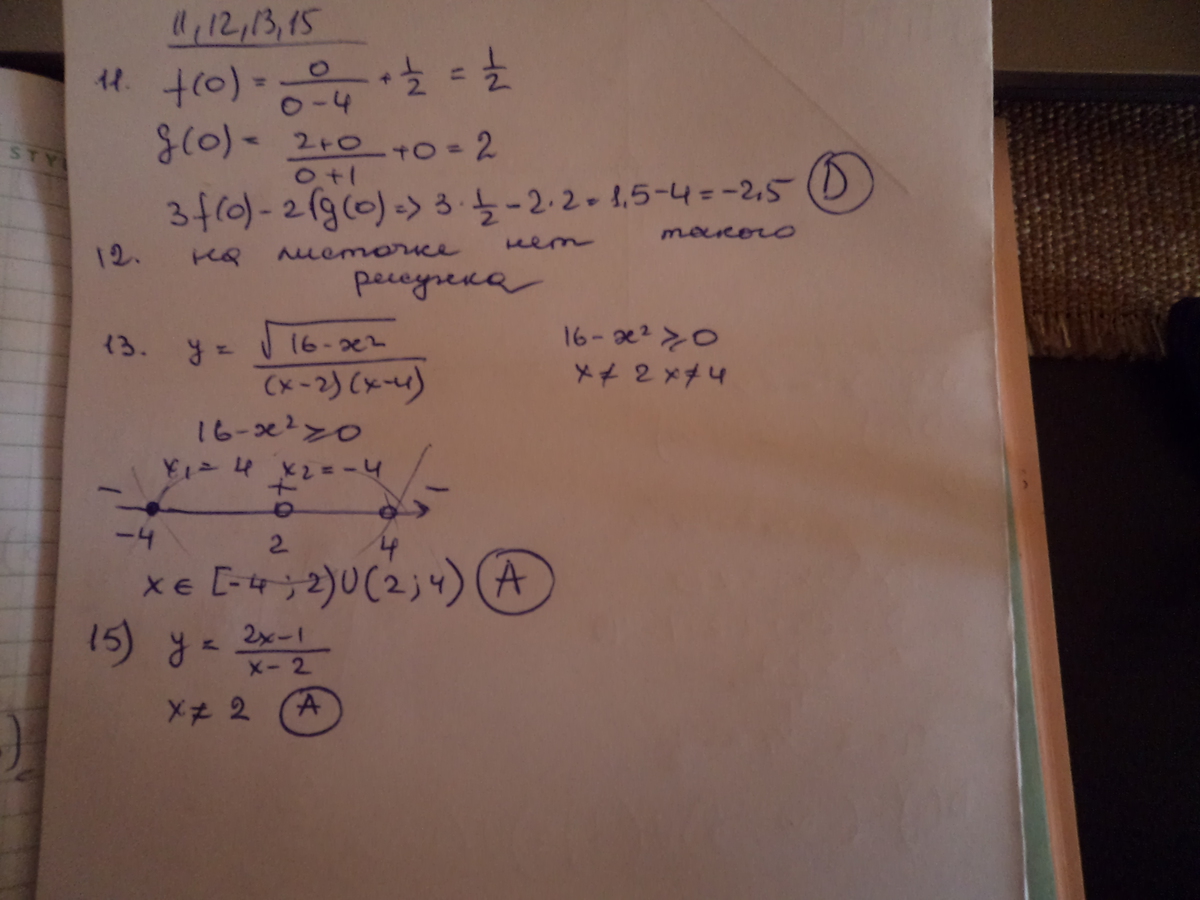 11, 12, 13, 15
11. f(0) = 0/(0-4) + 1/2 = 1/2
g(0) = (2+0)/(0+1) + 0 = 2
3f(0) - 2(g(0) => 3·1/2 - 2·2 = 1,5 - 4 = -2,5 D
12. на листочке нет такого
рисунка
13. y = √(16-x²)/((x-2)(x-4)) 16-x² ≥ 0
x ≠ 2 x ≠ 4
16-x² ≥ 0
x₁ = 4 x₂ = -4
- + -
-4 2 4
x ∈ [-4; 2)∪(2; 4) A
15) y = (2x-1)/(x-2)
x ≠ 2 A
STY